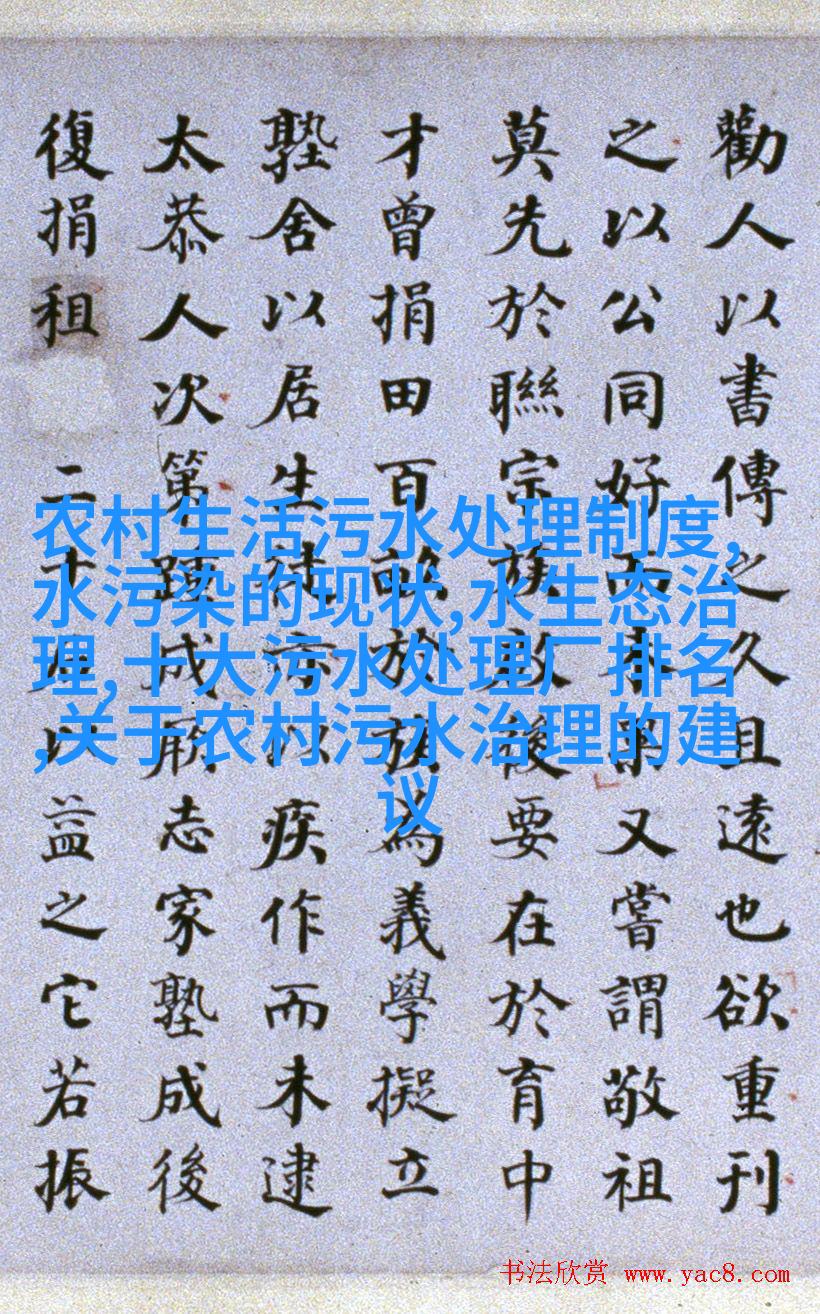 勸人以書傳之久且遠也欲重刊
之以公同好而未果又嘗謂敬祖
莫先於聯宗族後要在於育中
才曾捐田百畝於族為義學擬立
塾舍以居生徒亦以疾作而未逮
太恭人次第踵成厥志家塾成後
復捐租二十以益之它若振
农村生活污水处理制度,
水污染的现状,水生态治
理,十大污水处理厂排名
,关于农村污水治理的建
议
书法欣赏 www.yac8.com